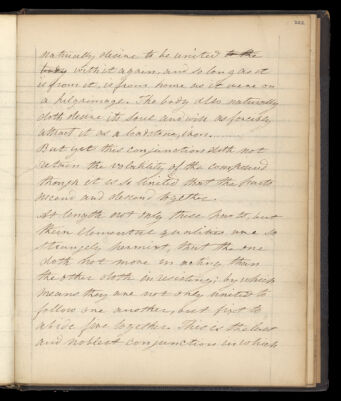 222
naturally desire to be united to the
body with it again, and so long as it
is from it, is from home as it were on
a pilgrimage. The body also naturally
doth desire its soul and will as forcibly
attract it as a loadstone, iron.
But yet this conjunction doth not
retain the volatility of the compound
though it is so united that the parts
ascend and descend together.
At length not only these parts, but
their elemental qualities are so
strangely permixt, that the one
doth not more in acting than
the other doth in resisting; by which
means they are not only united to
follow one another, but first to
abide fire together. This is the last
and noblest conjunction in which